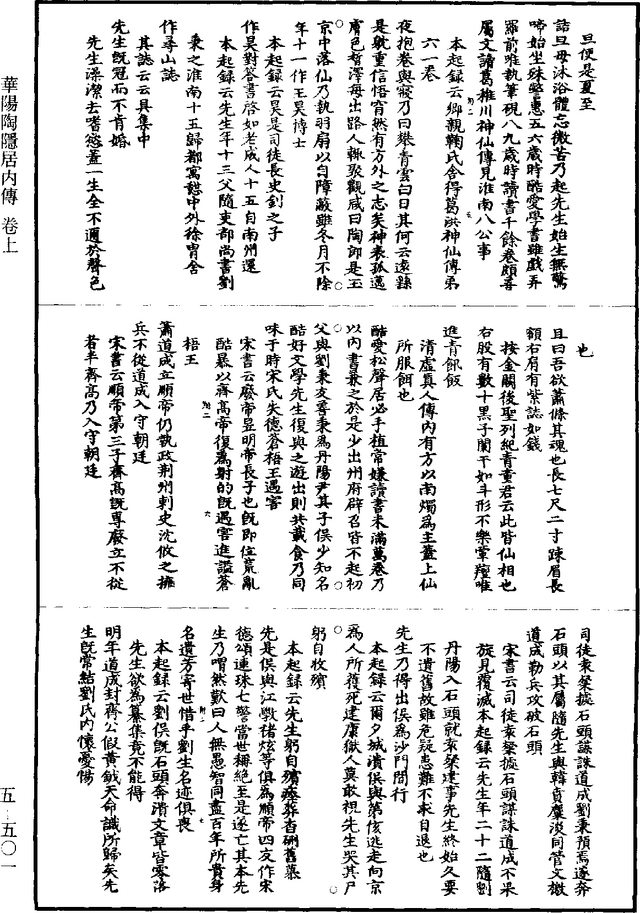 旦便是夏至
詰旦母沐浴體忘微苦乃起先生始生無驚
啼始坐殊警惠五六歲時酷愛學書雖戲弄
羅前唯執筆硯八九歲時讀書千餘卷頗善
屬文諸葛稚川神仙傳見淮南八公事
本起録云鄉親鞠氏舍得葛洪神仙傳弟
六一卷
夜抱卷與寢乃曰攀青雲白日其何云遠繇
是就重信悟窅然有方外之志矣神表孤邁
膚色皙澤每出路人輙聚觀咸曰陶郎是玉
京中落仙乃執羽扇以自障蔽雖冬月不除
年十一作王昊博士
本起録云昊是司徒長史釗之子
作昊對答書啓如老成人十五自南州還
本起録云先生年十三父隨吏部尚書劉
秉之淮南十五歸都寓憇中外徐胄舍
作尋山誌
其誌云云具集中
先生旣冠而不肯婚
先生澡潔去嗜慾蓋一生全不邇於聲色
也
且曰吾欲蕭條其魂也長七尺二寸踈眉長
額右肩有紫誌如錢
按金闕後聖列紀青童君云此皆仙相也
右股有數十黑子闌干如斗形不樂葷羶唯
進青䭀飯
清虛真人傳內有方以南燭爲主蓋上仙
所服餌也
酷愛松聲居必手植常嫌讀書未滿萬卷乃
以內書兼之於是少出州府辟召皆不起初
父與劉秉友善秉爲丹陽尹其子俁少知名
酷好文學先生復與之遊出則共載食乃同
味于時宋氏失德蒼梧王遇害
宋書云廢帝昱明帝長子也旣即位荒亂
酷暴以齊高帝復爲射的旣遇害進謚蒼
梧王
蕭道成立順帝仍執政荆州刺史沈攸之擁
兵不從道成入守朝廷
宋書云順帝第三子齊高旣專廢立不從
者半齊高乃入守朝廷
司徒袁粲據石頭謀誅道成劉秉預焉遂奔
石頭以其屬隨先生與韓賁糜淡同管文檄
道成勒兵攻破石頭
宋書云司徒袁粲據石頭謀誅道成不果
旋見覆滅本起録云先生年二十二隨劉
丹陽入石頭就袁粲建事先生終始久要
不遺舊故雖危疑患難不求自退也
先生乃得出俁爲沙門間行
本起録云爾夕城潰俁與第侅逃走向京
爲人所獲死建康獄人莫敢視先生哭其尸
躬自收殯
本起録云先生躬自殯瘞葬㫖硎舊墓
先是俁與江斆褚炫等俱爲順帝四友作宋
德頌連珠七警當世稱絕至是遂亡其本先
生乃喟然歎曰人無愚智同盡百年所貴身
名遺芳寄世惜乎劉生名迹俱喪
本起録云劉俁旣石頭奔潰文章皆零落
先生欲爲纂集竟不能得
明年道成封齊公假黃鉞天命識所歸矣先
生旣常結劉氏內懷憂惕
華陽陶隱居内傳 卷上
五—五〇一